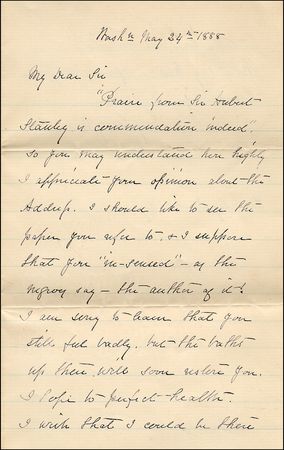 Wash'n May 24th 1888
My Dear Sir
"Praise from Sir Hubert
Stanley is commendation indeed".
So you may understand how highly
I appreciate your opinion about the
Address. I should like to see the
paper you refer to, & I suppose
that you "in-sensed" - as the
negroes say - the author of it!
I am sorry to learn that you
still feel badly, but the baths
up there will soon restore you,
I hope to perfect health.
I wish that I could be there